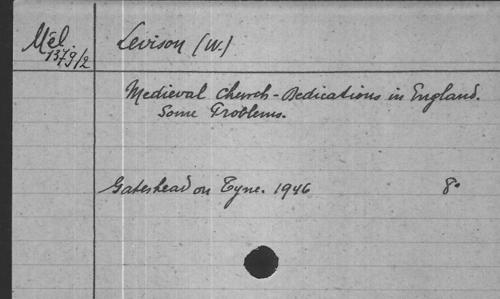 Mél. Levison (W.)
1379/2
Medieval Church-Dedications in England.
Some Problems.
Gateshead on Tyne. 1946 8°